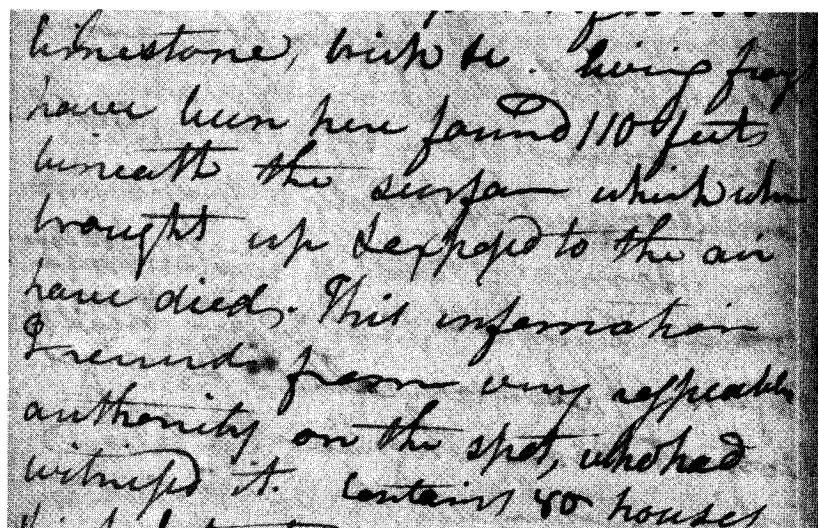 limestone, brick &c. living frogs
have been here found 110 feet
beneath the surface which when
brought up & exposed to the air
have died. This information
I received from very respectable
authority on the spot, who had
witnessed it. Contains 80 houses